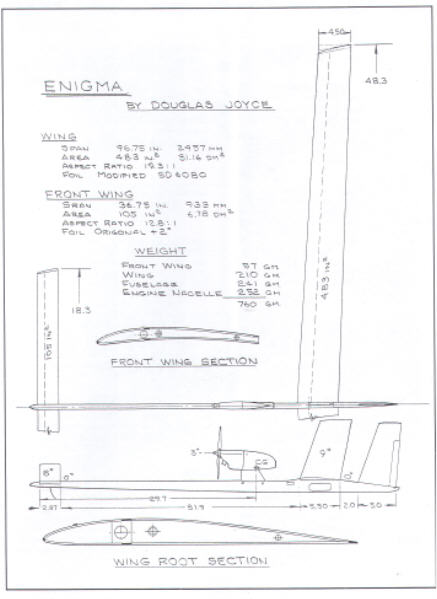 4.50
48.3
ENIGMA
BY DOUGLAS JOYCE
WING
SPAN 96.75 IN. 2457 MM
AREA 483 IN² 31.16 DM²
ASPECT RATIO 19.3:1
FOIL MODIFIED SD6080
FRONT WING
SPAN 36.75 IN. 933 MM
AREA 105 IN² 6.78 DM²
ASPECT RATIO 12.8:1
FOIL ORIGONAL +2°
WEIGHT
FRONT WING 57 GM
WING 210 GM
FUSELAGE 241 GM
ENGINE NACELLE 252 GM
760 GM
18.3
105 IN²
483 IN²
FRONT WING SECTION
3°
CG
9"
8"
0°
0°
29.7
2.87
51.9
5.50
2.0
5.0
WING ROOT SECTION